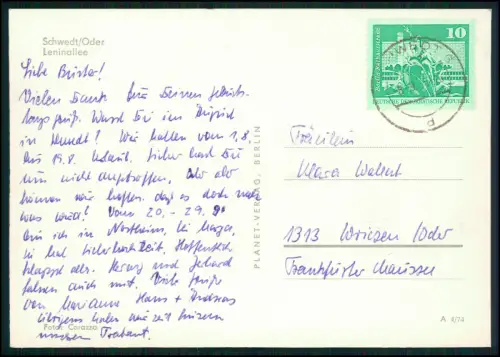 Schwedt/Oder
Leninallee
Liebe Bister!
Vielen Dank für Deinen Geburts-
tagsgruß. Warst Du im August
in Schwedt? Wir hatten vom 1.8.
bis 19.8. Urlaub. Sicher hast Du
uns nicht angetroffen. Aber
können wir hoffen, daß es doch noch
was wird? Vom 20. - 29. 9.
bin ich in Northeim, bei
hat Silberhochzeit. Hoffentlich
klappt alles. und Gerhard
fahren auch mit. Viele Grüße
von Marianne Hans + Andreas
Übrigens haben wir seit kurzem
unseren Trabant.
Foto: Corazza
PLANET-VERLAG, BERLIN
10
DEUTSCHE DEMOKRATISCHE REPUBLIK
Fräulein
Klara
1313 Wriezen/Oder
Frankfurter Chaussee
A 1/74